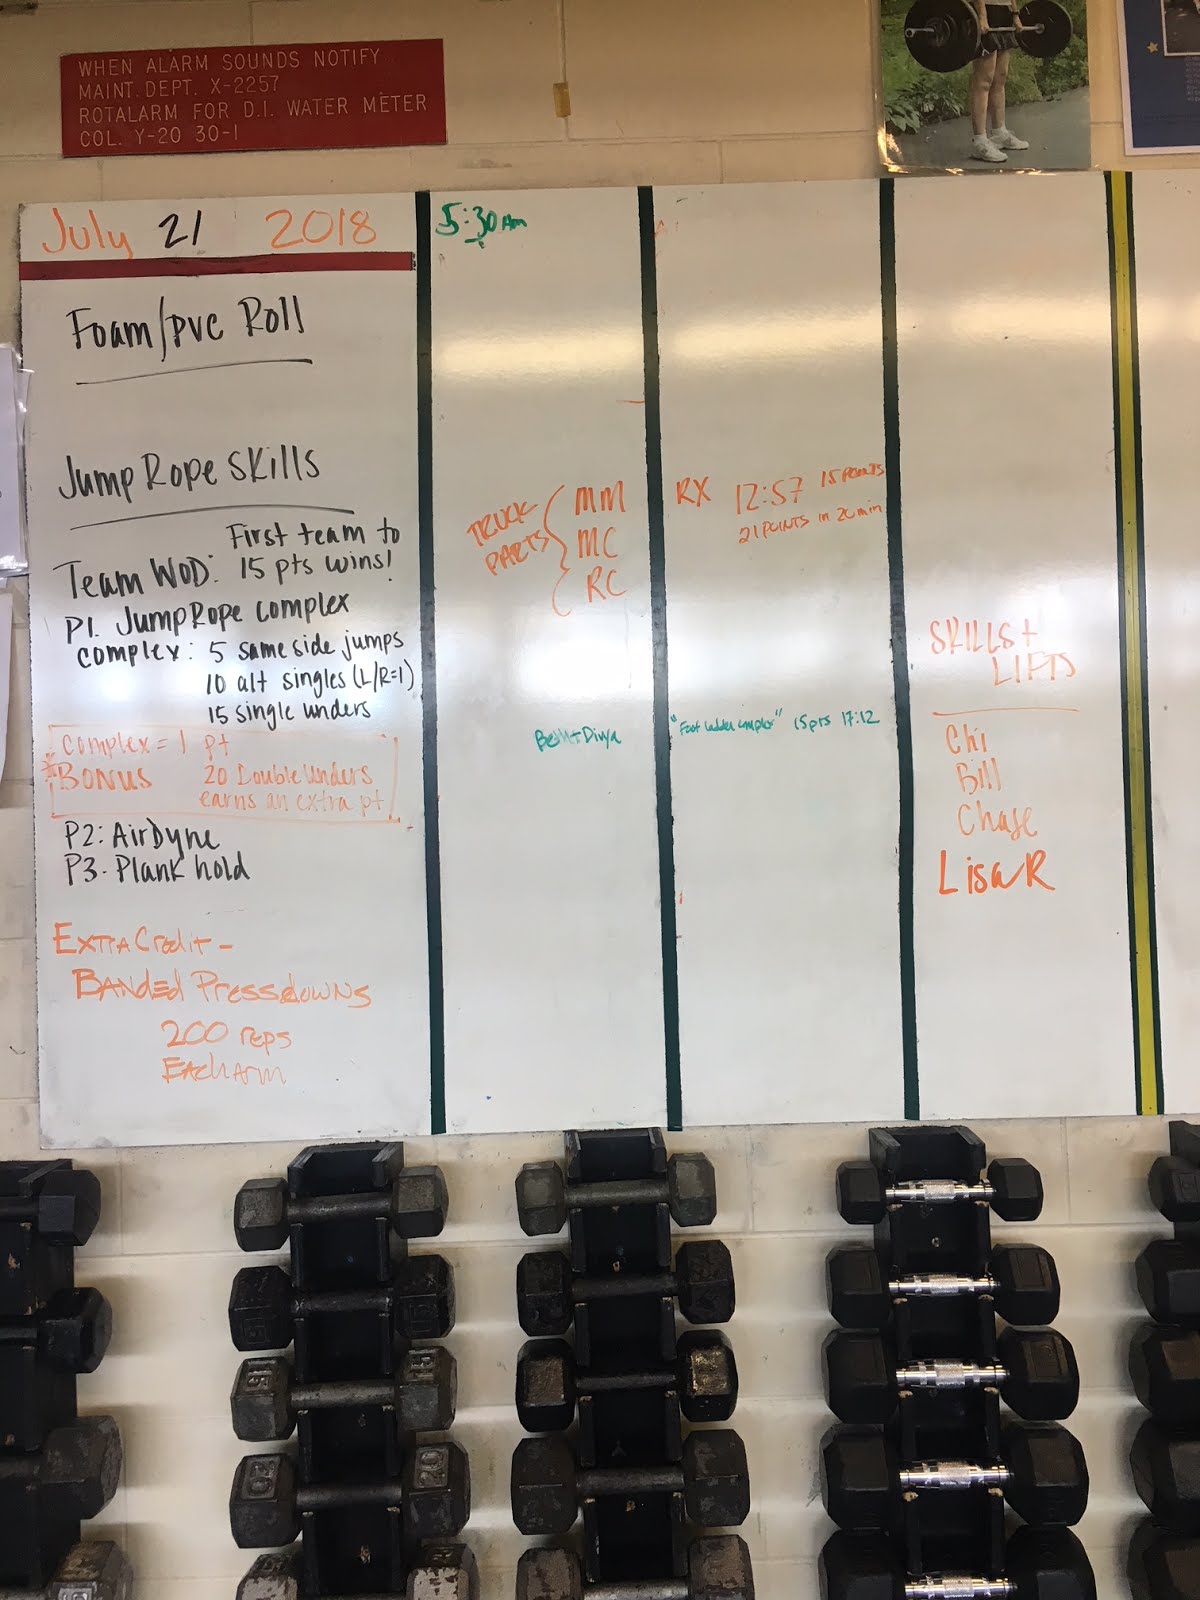 WHEN ALARM SOUNDS NOTIFY
MAINT. DEPT. X-2257
ROTALARM FOR D.I. WATER METER
COL. Y-20 30-1
July 21 2018
Foam/PVC Roll
Jump Rope Skills
First team to
Team WOD: 15 pts wins!
P1. Jump Rope complex
complex: 5 same side jumps
10 alt singles (L/R=1)
15 single unders
Complex = 1 pt
*BONUS 20 Double Unders
earns an extra pt
P2: AirDyne
P3- Plank hold
Extra Credit -
Banded Pressdowns
200 reps
Each arm
5:30 Am
TRUCK
PARTS
MM
MC
RC
RX 12:57 15 POINTS
21 POINTS in 20 min
+ Divya
"Foot ladder complex" 15 pts 17:12
SKILLS +
LIFTS
Chi
Bill
Chase
Lisa R
15
20